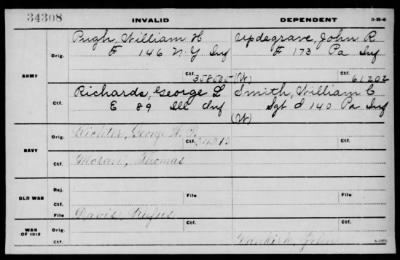 34308
INVALID DEPENDENT
Pugh, William H Updegrave, John R
ARMY Orig. F 146 N.Y Inf F 173 Pa Inf
Ctf. (W) 61202
Richards, George L Smith, William C
Orig. E 89 Ill Inf Sgt 140 Pa Inf
Ctf. (W)
NAVY Orig. George
Ctf.
Moran, Thomas
Orig.
Ctf.
OLD WAR Rej.
File File
Ctf.
WAR OF 1812 Orig. Davis, Rufus
Ctf. John